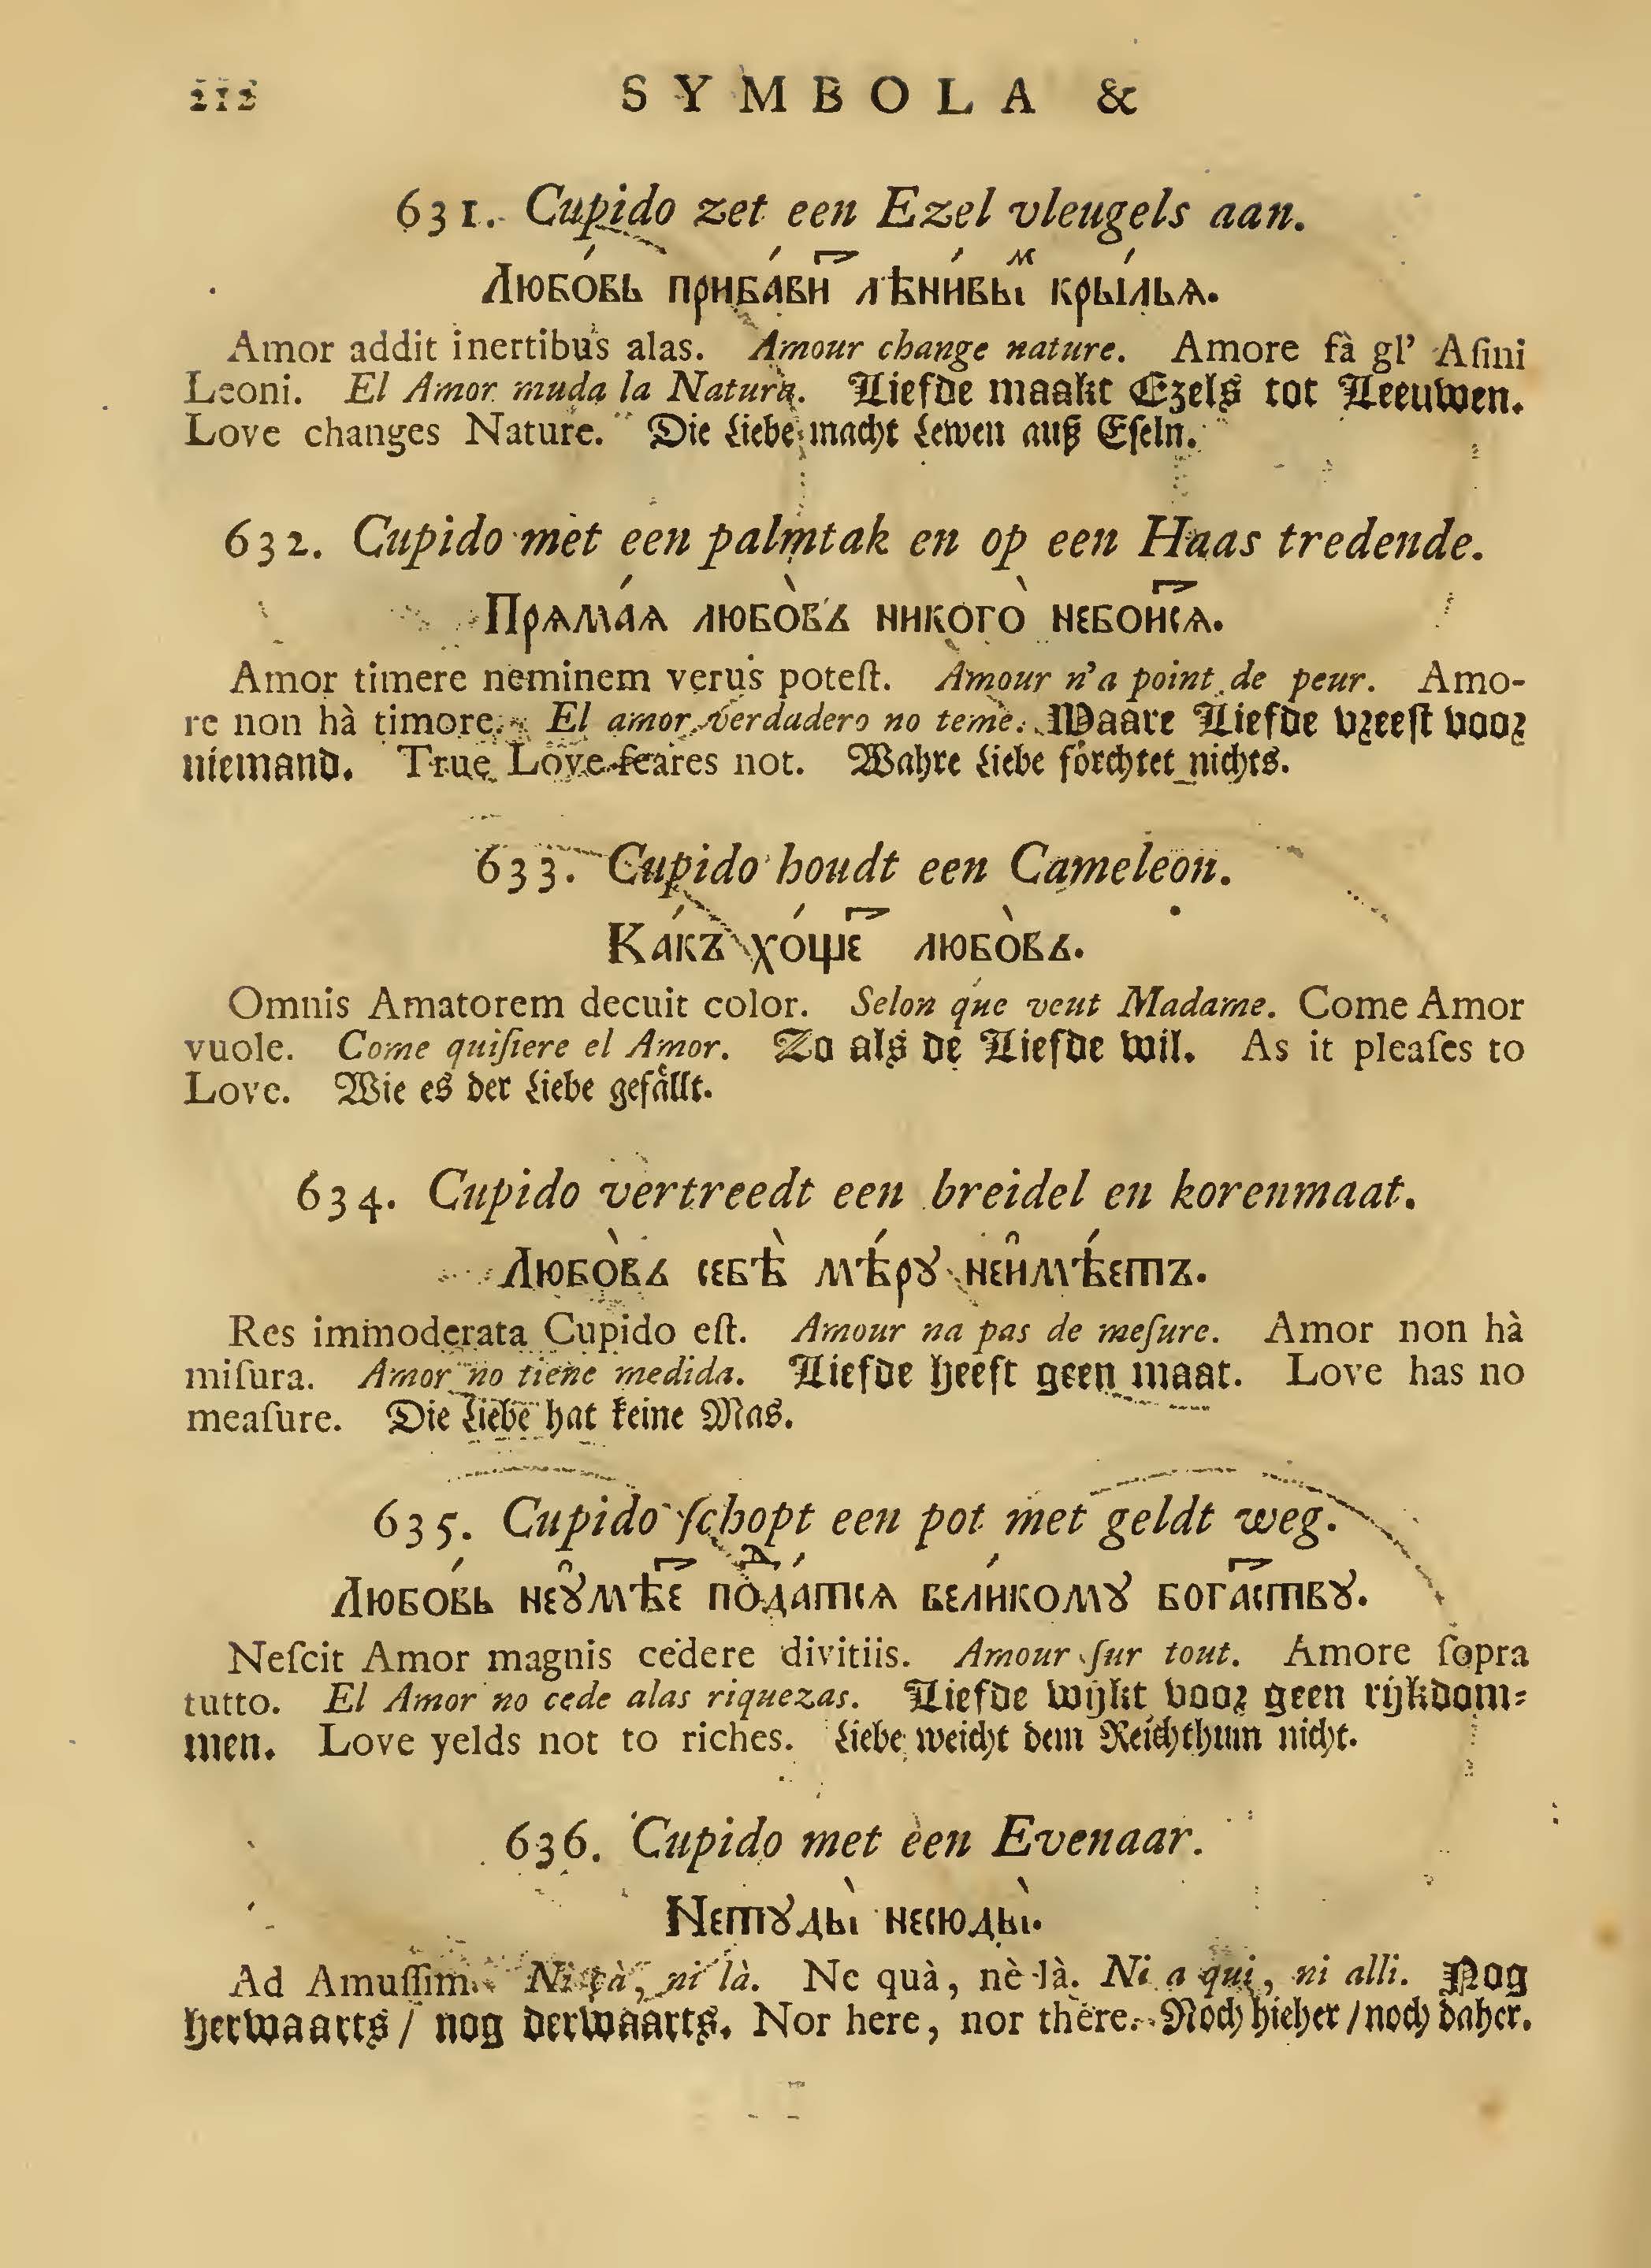 212 SYMBOLA &
631. Cupido zet een Ezel vleugels aan.
Любо́вь приба́ви҇ лѣни́вы́ⷨ кры́льѧ.
Amor addit inertibus alas. Amour change nature. Amore fà gl' Aſini
Leoni. El Amor muda la Natura. Liefde maakt Ezels tot Leeuwen.
Love changes Nature. Die Liebe macht Lewen auß Eſeln.
632. Cupido met een palmtak en op een Haas tredende.
Прѧма́ѧ любо̀въ никого̀ небои҇сѧ.
Amor timere neminem verus poteſt. Amour n'a point de peur. Amo-
re non hà timore. El amor verdadero no teme. Waare Liefde vꝛeeſt vooꝛ
niemand. True Love feares not. Wahre Liebe förchtet nichts.
633. Cupido houdt een Cameleon.
Ка́къ хо́ще҇ любо̀въ.
Omnis Amatorem decuit color. Selon que veut Madame. Come Amor
vuole. Come quiſiere el Amor. Zo als de Liefde wil. As it pleaſes to
Love. Wie es der Liebe gefällt.
634. Cupido vertreedt een breidel en korenmaat.
Любо̀въ себѣ̀ мѣ́рꙋ неи̑мѣ́етъ.
Res immoderata Cupido eſt. Amour na pas de meſure. Amor non hà
miſura. Amor no tiene medida. Liefde heeft geen maat. Love has no
meaſure. Die Liebe hat keine Mas.
635. Cupido ſchopt een pot met geldt weg.
Любо́вь неꙋ̑мѣе҇ поⷣда́тисѧ вели́комꙋ бога҇ствꙋ.
Neſcit Amor magnis cedere divitiis. Amour ſur tout. Amore ſopra
tutto. El Amor no cede alas riquezas. Liefde wijkt vooꝛ geen rijkdom-
men. Love yelds not to riches. Liebe weicht dem Reichthum nicht.
636. Cupido met een Evenaar.
Нетꙋды̀ несюды̀.
Ad Amuſſim. Ni çà, ni là. Ne quà, nè là. Ni a qui, ni alli. Nog
herwaarts / nog derwaarts. Nor here, nor there. Noch hieher / noch daher.